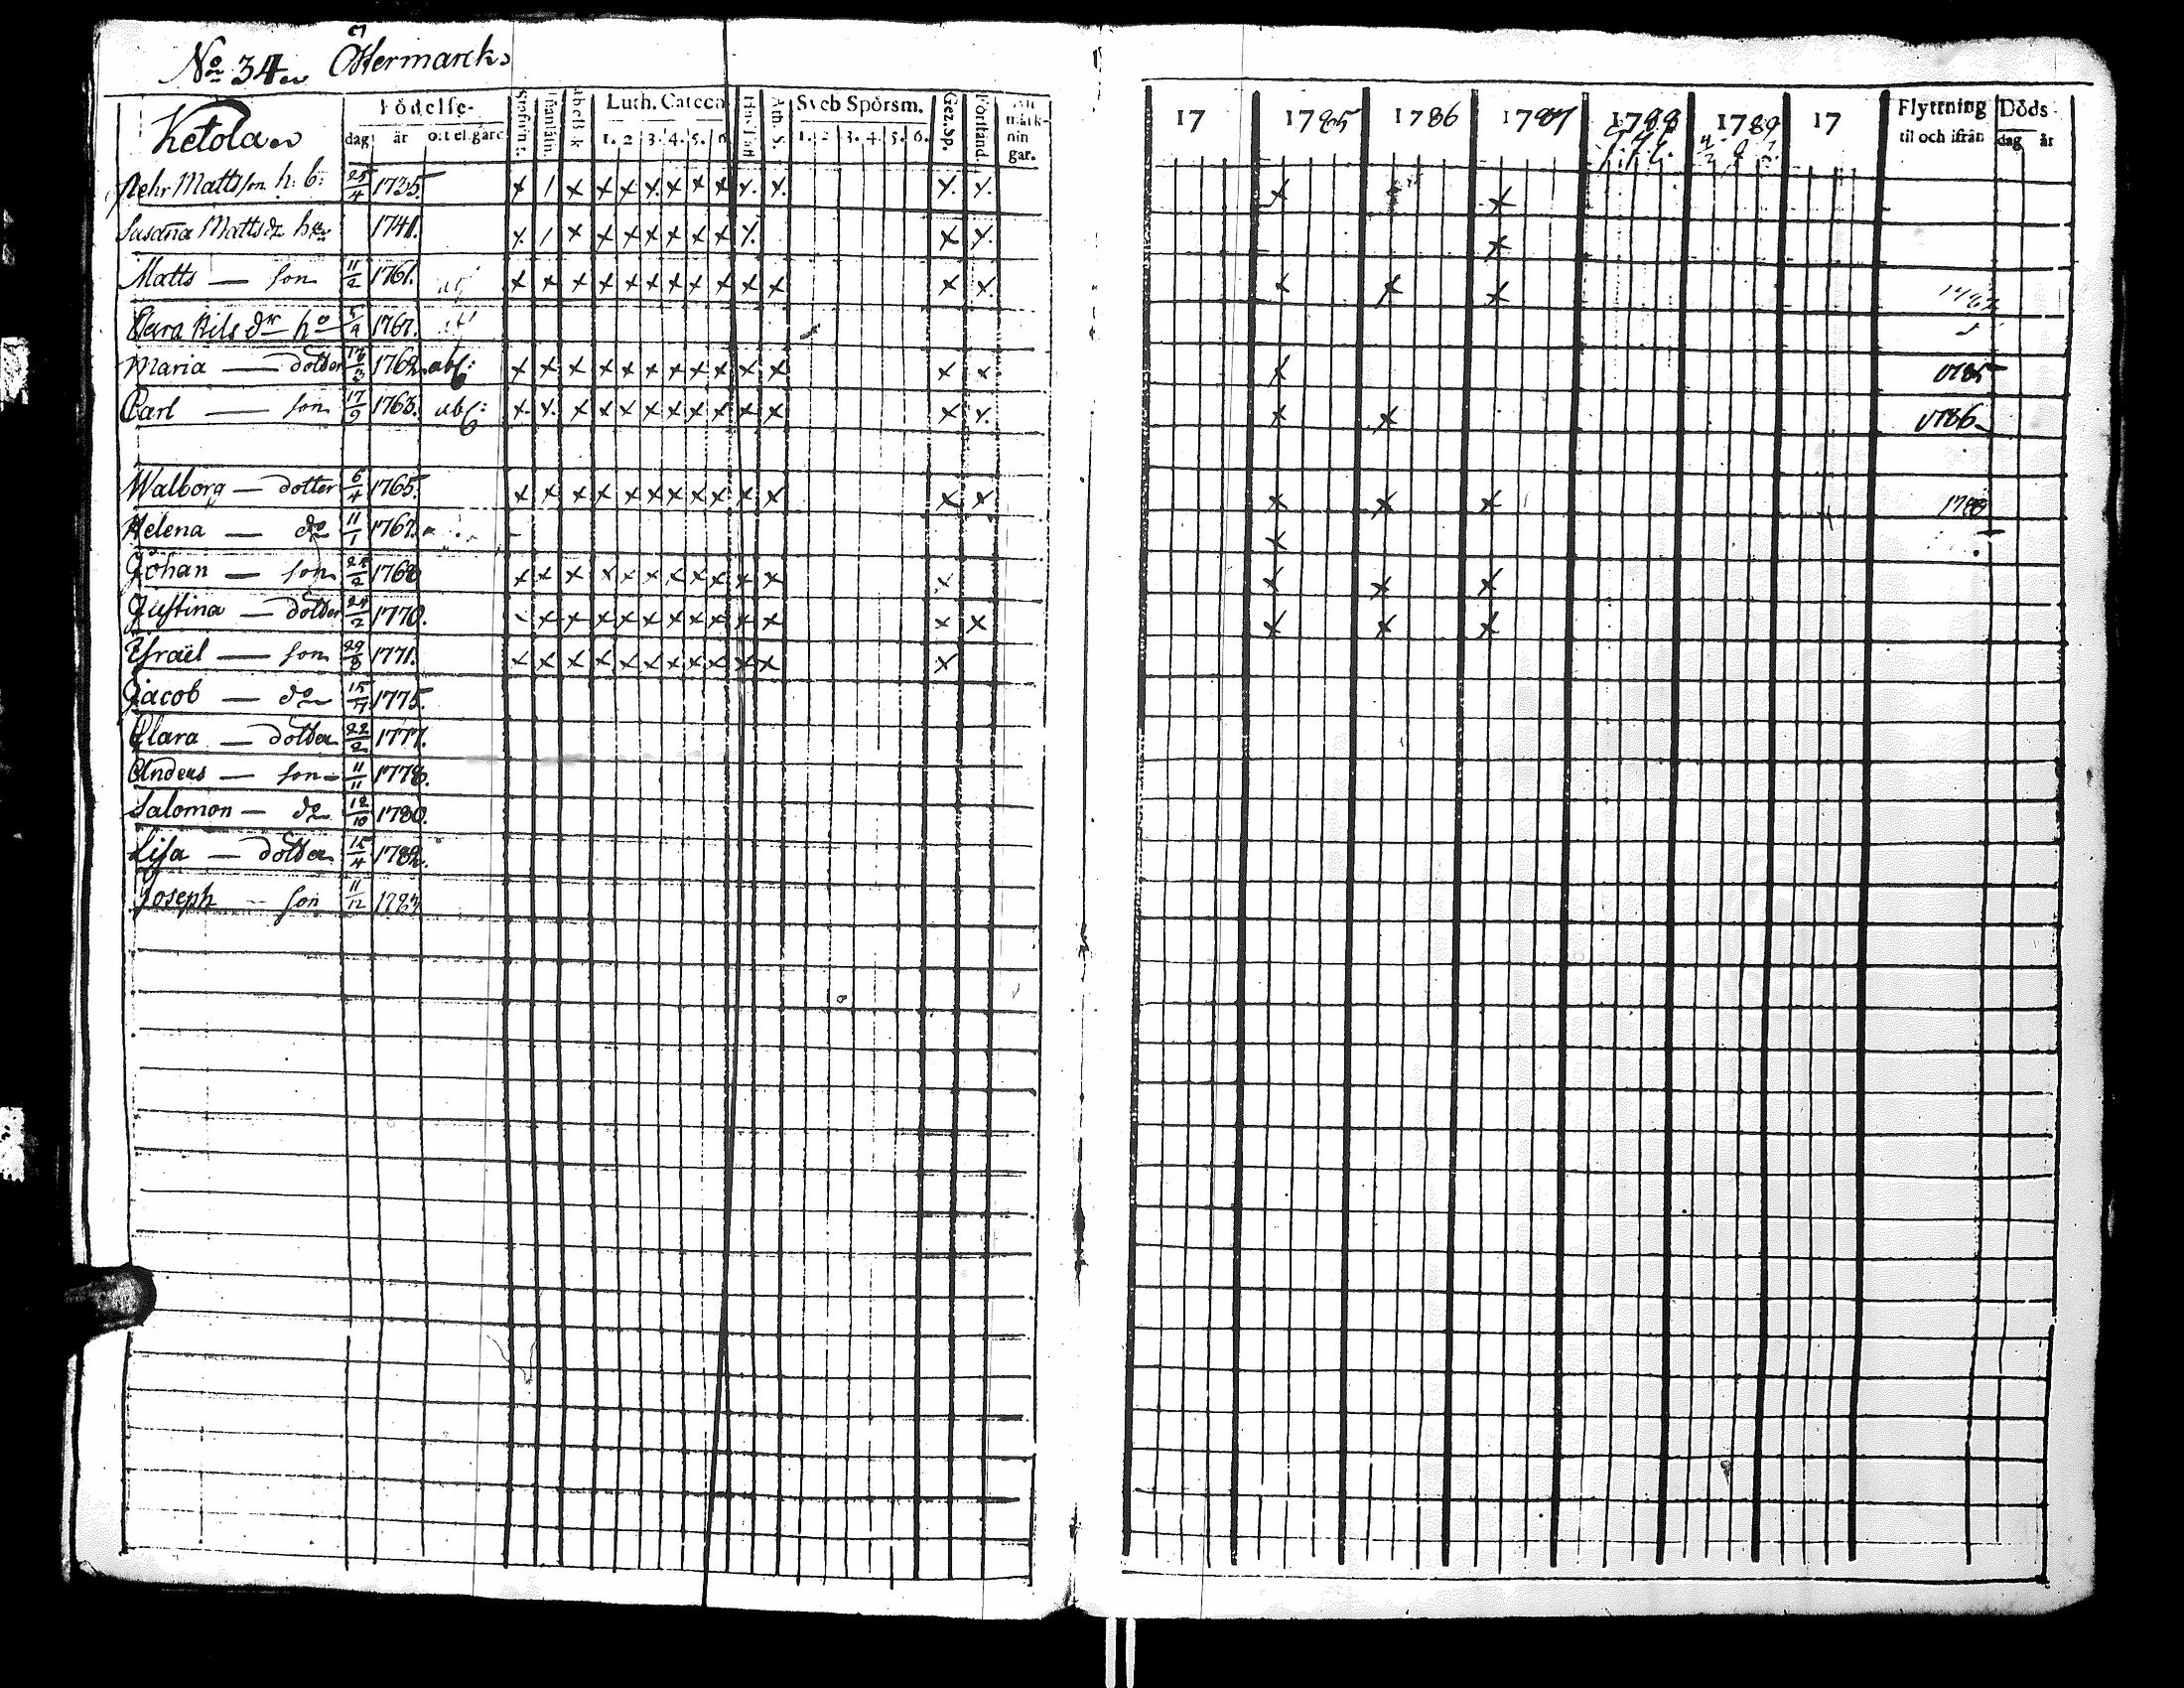 No 34 Östermarck
Födelse- Luth. Catech Sveb Spörsm. Gez.Sp. Förstånd. An märk- nin gar.
Ketola dag år ort el. gård 1. 2 3. 4. 5. 6 1. 2 3. 4. 5. 6.
Pehr Mattsson h. b: 25/4 1735. x / x x x x x x x x x x x
Susana Matts dr 1741. x / x x x x x x x x x x
Matts — son 11/2 1761. x x x x x x x x x x x x x
Clara Nils dr ho 5/4 1767.
Maria — dotter 1762. abs: x x x x x x x x x x x x x
Carl — son 17/9 1763. abs: x x x x x x x x x x x x x
Walborg — dotter 6/4 1765. x x x x x x x x x x x x x
Helena — do 11/1 1767.
Johan — son 1768 x x x x x x x x x x x x
Justina — dotter 24/2 1770. x x x x x x x x x x x x
Esraël — son 29/8 1771. x x x x x x x x x x x x
Jacob — do 15/7 1775.
Clara — dotter 22/2 1777.
Anders — son 11/11 1778.
Salomon — do 12/10 1780.
Lisa — dotter 15/4 1782.
Joseph — son 11/12 1783
17 1785 1786 1787 1788 1789 17 Flyttning til och ifrån Döds dag år
x x
x
x x x
x 1785
x x 1786
x x x 1788
x
x x x
x x x